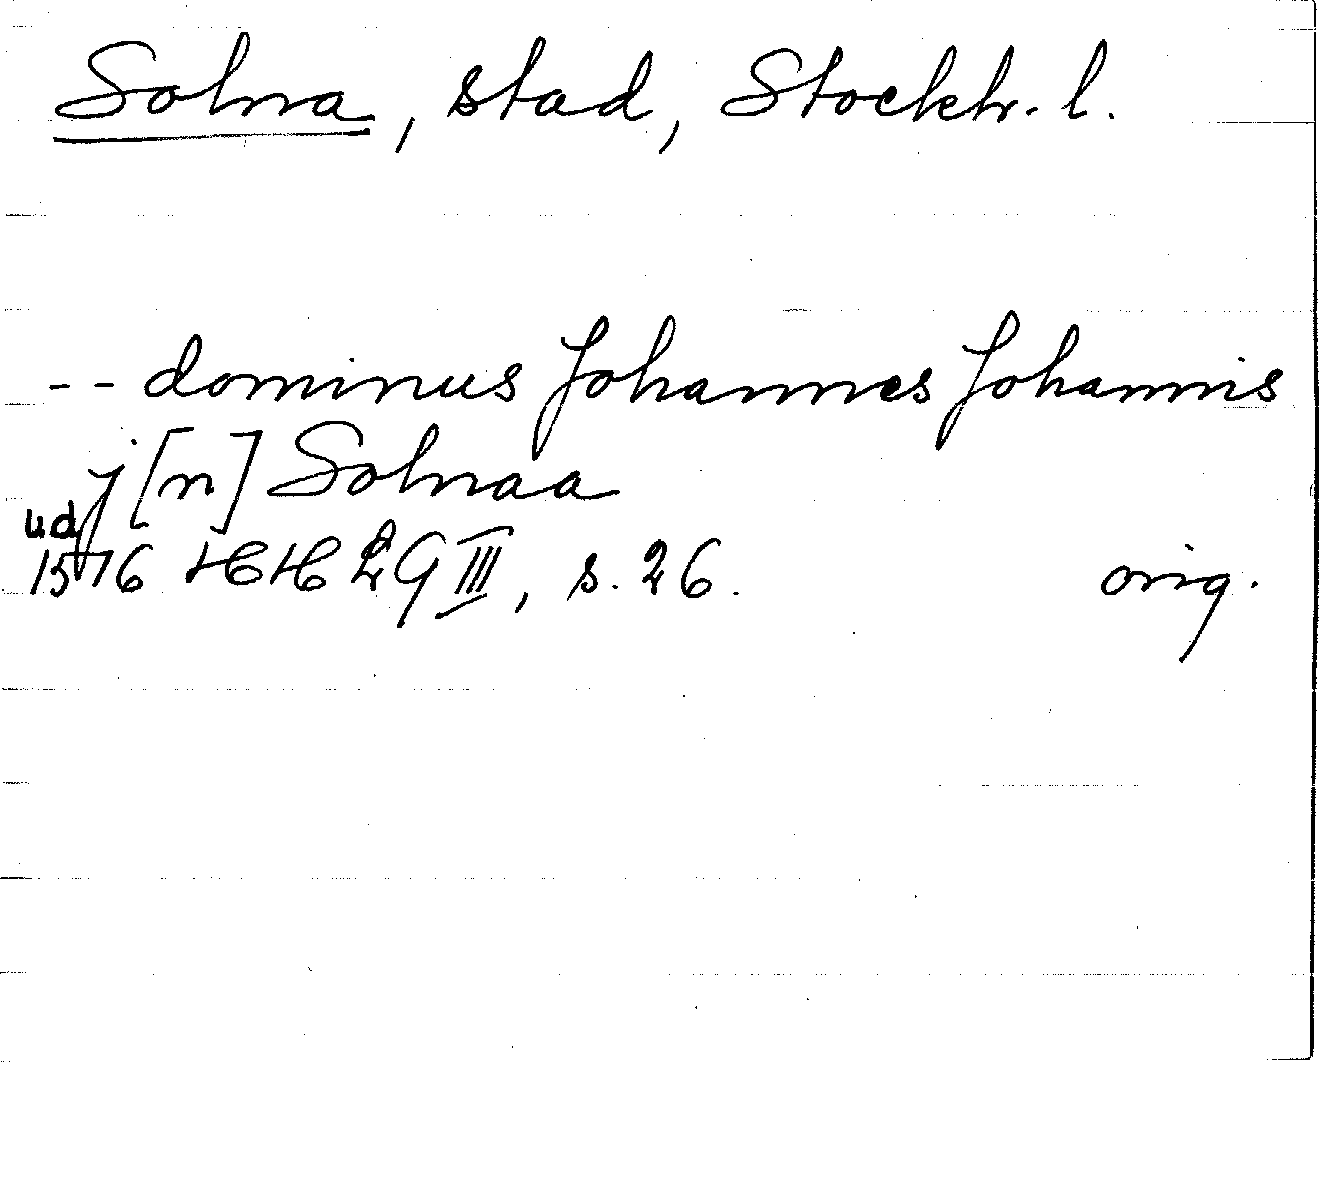 Solna, stad, Stockh. l.
-- dominus Johannes Johannis
j [n] Solnaa
u.d.
1576 HH 29 III, s. 26. orig.